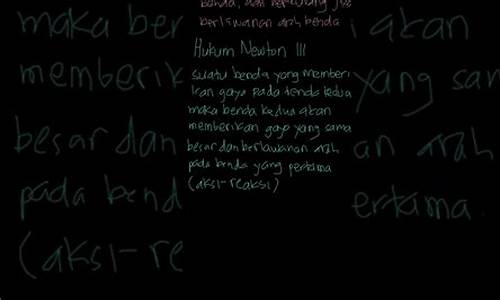 benda, dan
berlawanan arah benda
Hukum Newton III
suatu benda yang memberi
kan gaya pada benda kedua
maka benda kedua akan
memberikan gaya yang sama
besar dan berlawanan arah
pada benda yang pertama
(aksi-reaksi)
maka ber
i akan
memberik
yang sam
besar dan
an arah
pada bend
ertama
(aksi-re